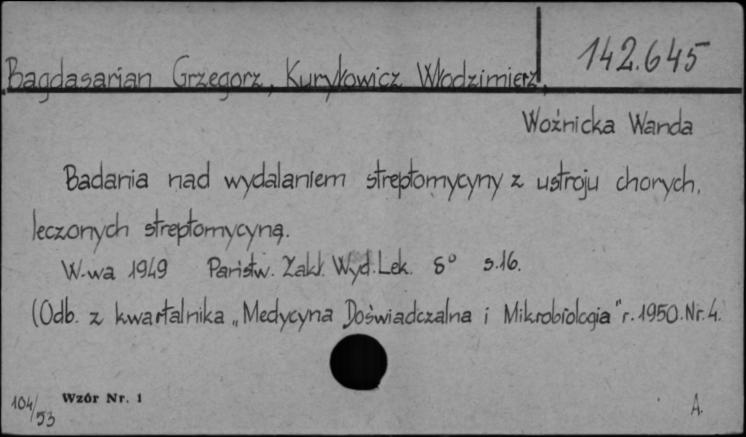 142.645
Bagdasarian Grzegorz, Kuryłowicz Włodzimierz,
Woźnicka Wanda
Badania nad wydalaniem streptomycyny z ustroju chorych,
leczonych streptomycyną.
W-wa 1949 Państw. Zakł. Wyd. Lek. 8° s.16.
(Odb. z kwartalnika „Medycyna Doświadczalna i Mikrobiologia" r. 1950. Nr. 4.
104/53 Wzór Nr. 1
A.